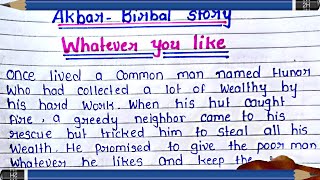 Akbar-Birbal Story
Whatever you like
Once lived a common man named Hunar
who had collected a lot of wealthy by
his hard work. When his hut caught
fire, a greedy neighbor came to his
rescue but tricked him to steal all his
wealth. He promised to give the poor man
whatever he likes and keep the